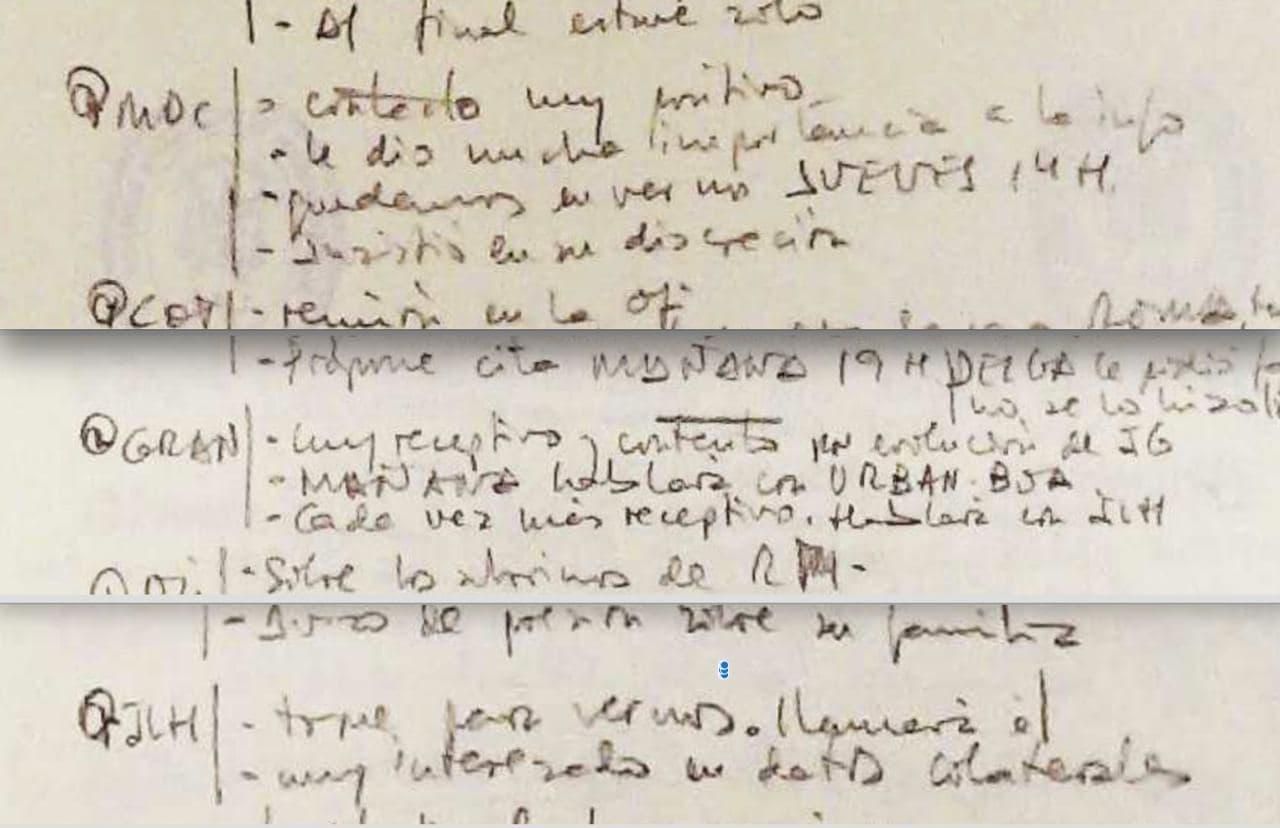 - Al final estuve solo
@ MDC - contacto muy positivo
- le dio mucha importancia a la info
- quedamos en vernos JUEVES 14 H.
- Insistió en su discreción
@ COT - reunión en la Of
- Propone cita MAÑANA 19 H le pidió
no se lo hizo
@ GRAN - muy receptivo y contento por evolución de JG
- MAÑANA hablará con URBAN. BOA
- Cada vez más receptivo. Hablará con JLH
- Sobre los abonos de R
- de presión sobre su familia
@ JLH - toque para vernos. llamará él
- muy interesado en datos colaterales